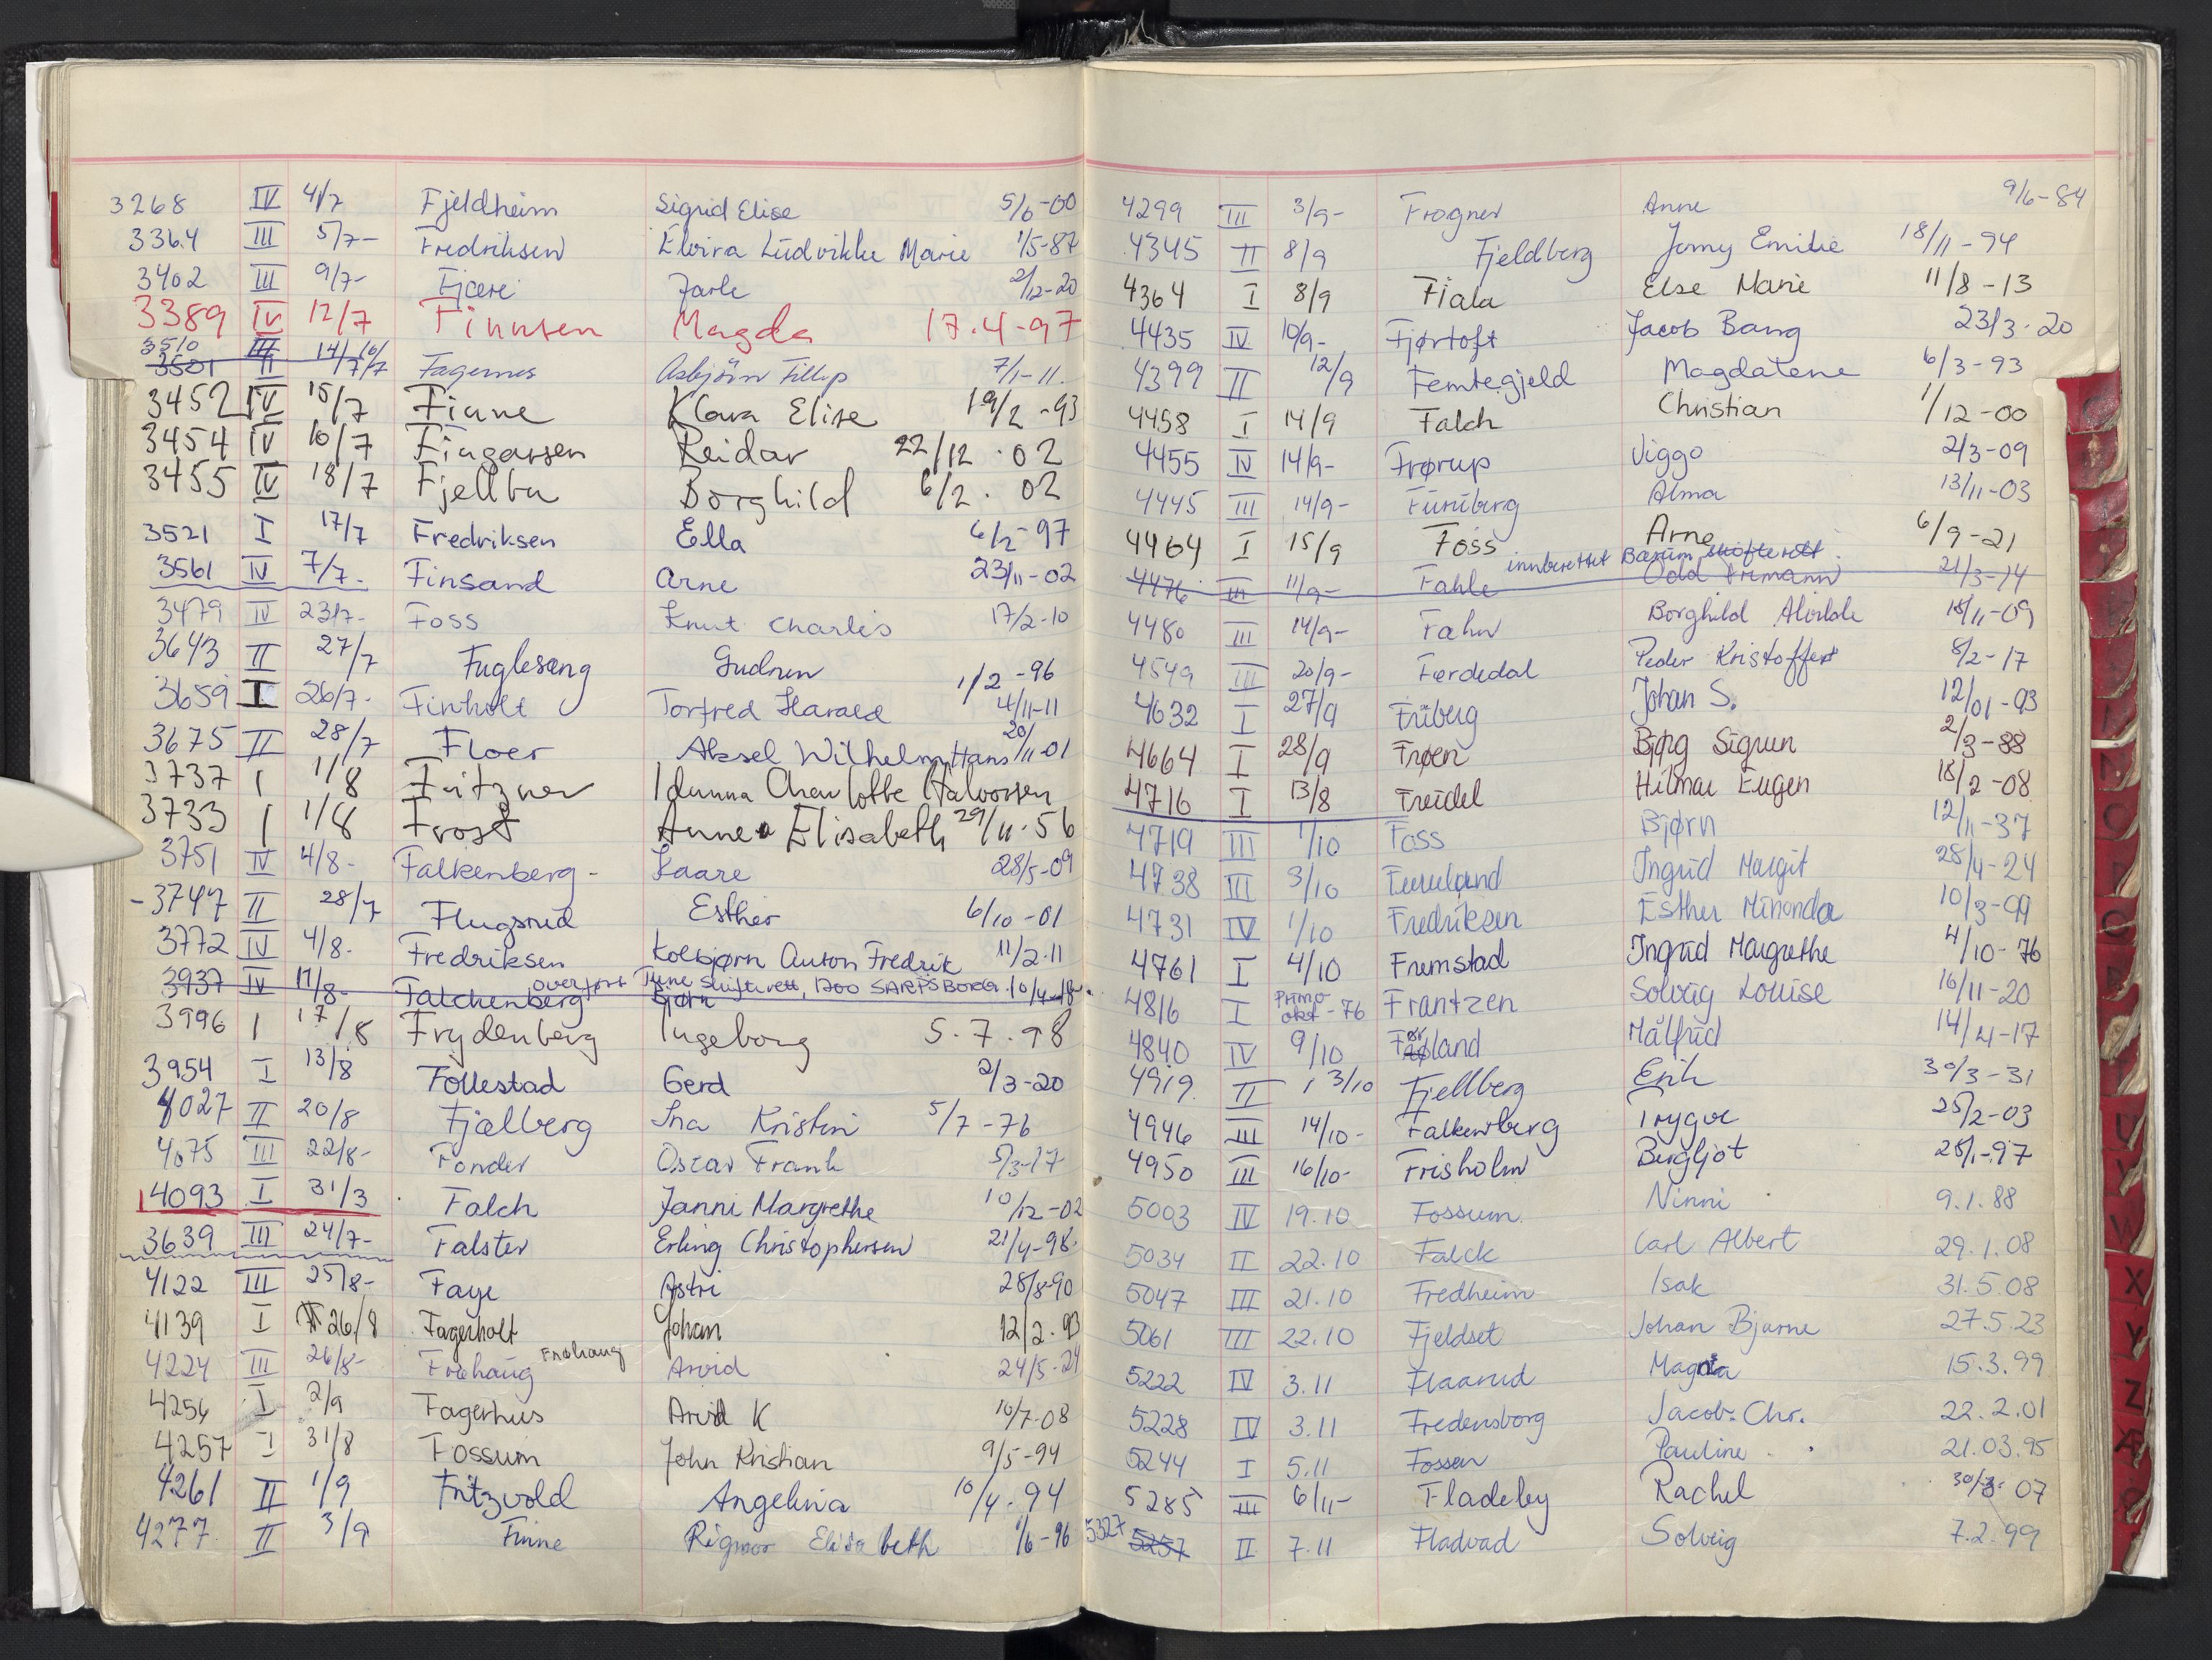 3268 IV 4/7 Fjeldheim Sigrid Elise 5/6-00
3364 III 5/7- Fredriksen Elvira Ludvikke Marie 1/5-87
3402 III 9/7- Fjære Jarle 2/12-20
3389 IV 12/7 Finnsen Magda 17.4-97
3510 III 14/7 10/7
3501 II 7/7 Fagernes Asbjörn Fillip 7/1-11.
3452 IV 15/7 Finne Klara Elise 19/2-93
3454 IV 16/7 Fingarsen Reidar 22/12.02
3455 IV 18/7 Fjellbu Borghild 6/2.02
3521 I 17/7 Fredriksen Ella 6/2-97
3561 IV 7/7- Finsand Arne 23/11-02
3479 IV 23/7- Foss Knut Charles 17/2-10
3643 II 27/7 Fuglesang Gudrun 1/2-96
3659 I 26/7- Finholt Torfred Harald 4/11-11
3675 II 28/7 Floer Aksel Wilhelm Hans 20/11-01
3737 I 1/8 Fritzner Idunna Charlotte Halvorsen
3733 I 1/8 Frost Anne Elisabeth 29/11.56
3751 IV 4/8- Falkenberg- Kaare 28/5-09
-3747 II 28/7 Flugsrud Esther 6/10-01
3772 IV 4/8- Fredriksen Kolbjørn Anton Fredrik 11/2-11
overført Tune Skifterett, 1700 SARPSBORG
3937 IV 11/8- Falchenberg Bjørn 10/4-18
3996 I 17/8 Frydenberg Ingeborg 5.7.98
3954 I 13/8 Follestad Gerd 2/3-20
4027 II 20/8 Fjælberg Ina Kristin 5/7-76
4075 III 22/8- Fonder Oscar Frank 5/3-17
14093 I 31/3 Falch Janni Margrethe 10/12-02
3639 III 24/7- Falster Erling Christophersen 21/4-98.
4122 III 25/8- Faye Astri 28/8-90
4139 I 26/8 Fagerholt Johan 12/2.93
4224 III 26/8- Frøhaug Frøhaug Arvid 24/5-24
4256 I 2/9 Fagerhus Arvid K 10/7-08
4257 I 31/8 Fossum John Kristian 9/5-94
4261 II 1/9 Fritzvold Angelina 10/4.94
4277. II 3/9 Finne Rigmor Elisabeth 1/6-96
4299 III 3/9- Frogner Anne 9/6-84
4345 II 8/9 Fjeldberg Jenny Emilie 18/11-94
4364 I 8/9 Fiala Else Marie 11/8-13
4435 IV 10/9- Fjørtoft Jacob Bang 23/3.20
4399 II 12/9 Femtegjeld Magdalene 6/3-93
4458 I 14/9 Falch Christian 1/12-00
4455 IV 14/9- Frørup Viggo 2/3-09
4445 III 14/9- Furuberg Alma 13/11-03
4464 I 15/9 Foss Arne 6/9-21
innberettet Bærum skifterett.
4476 III 11/9- Fahle Odd Ermann 21/3-14
4480 III 14/9- Fahn Borghild Alvilde 18/11-09
4549 III 20/9- Førdedal Peder Kristoffer 8/2-17
4632 I 27/9 Friberg Johan S. 12/01-93
4664 I 28/9 Frøen Bjørg Sigrun 2/3-88
4716 I 13/8 Freidel Hilmar Eugen 18/2-08
4719 III 1/10 Foss Bjørn 12/11-37
4738 III 3/10 Furulund Ingrid Margit 28/4-24
4731 IV 1/10 Fredriksen Esther Minonda 10/3-99
4761 I 4/10 Fremstad Ingrid Margrethe 4/10-76
4816 I Primo okt-76 Frantzen Solveig Louise 16/11-20
4840 IV 9/10 Førland Målfrid 14/4-17
4919. II 13/10 Fjellberg Erik 30/3-31
4946 III 14/10- Falkenberg Trygve 25/2-03
4950 III 16/10- Frisholm Bergljot 28/1-97
5003 IV 19.10 Fossum Ninni 9.1.88
5034 II 22.10 Falck Carl Albert 29.1.08
5047 III 21.10 Fredheim Isak 31.5.08
5061 III 22.10 Fjeldset Johan Bjarne 27.5.23
5222 IV 3.11 Flaarud Magna 15.3.99
5228 IV 3.11 Fredensborg Jacob. Chr. 22.2.01
5244 I 5.11 Fossen Pauline 21.03.95
5285 III 6/11- Fladeby Rachel 30/3-07
5327 5257 II 7.11 Fladvad Solveig 7.2.99
X
Y
Z